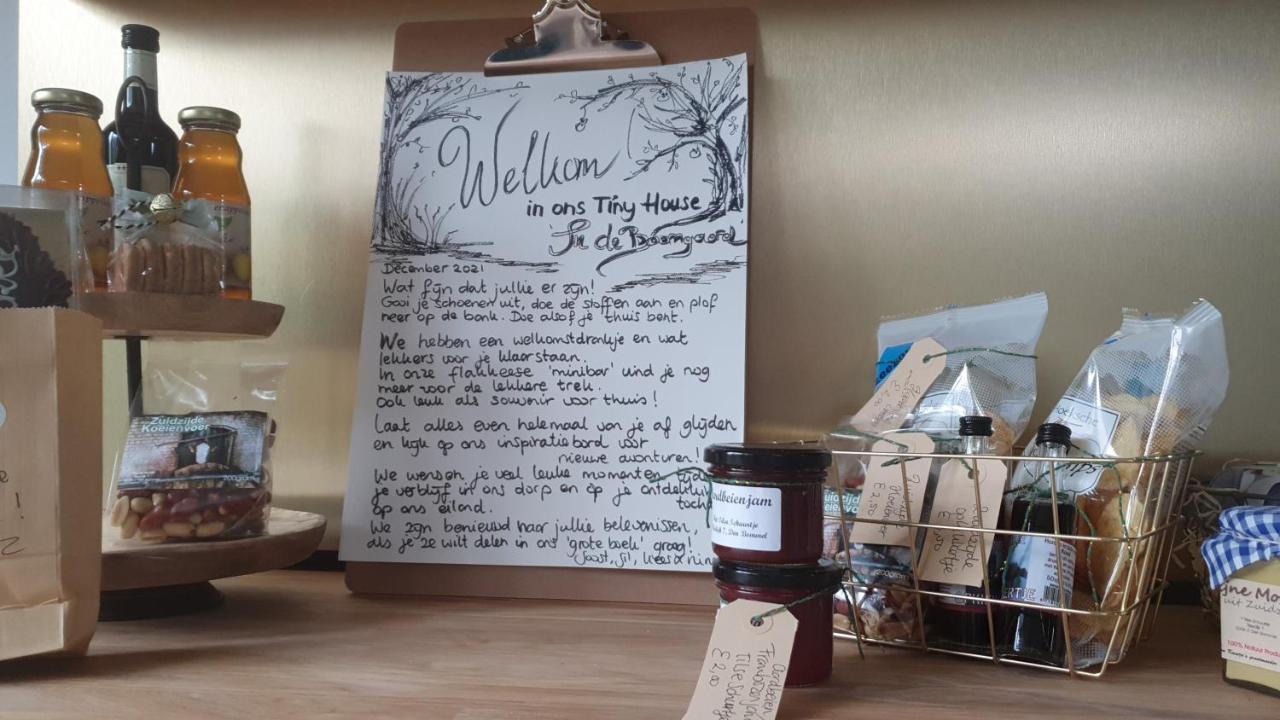 Welkom
in ons Tiny House
'In de Boomgaard'
December 2021
Wat fijn dat jullie er zijn!
Gooi je schoenen uit, doe de sloffen aan en plof
neer op de bank. Doe alsof je thuis bent.
We hebben een welkomstdrankje en wat
lekkers voor je klaarstaan.
In onze flakkeese 'minibar' vind je nog
meer voor de lekkere trek.
Ook leuk als souvenir voor thuis!
Laat alles even helemaal van je af glijden
en kijk op ons inspiratiebord voor
nieuwe avonturen!
We wensen je veel leuke momenten
je verblijf in ons dorp en op je
tocht
op ons eiland.
We zijn benieuwd naar jullie belevenissen,
als je ze wilt delen in ons 'grote boek' graag!
Zuidzijdse
Koeienvoer
200gram
rdbeienjam
Den Bommel
Aardbeien
€2,00
€2,50
100% Natuur
uit Zuid